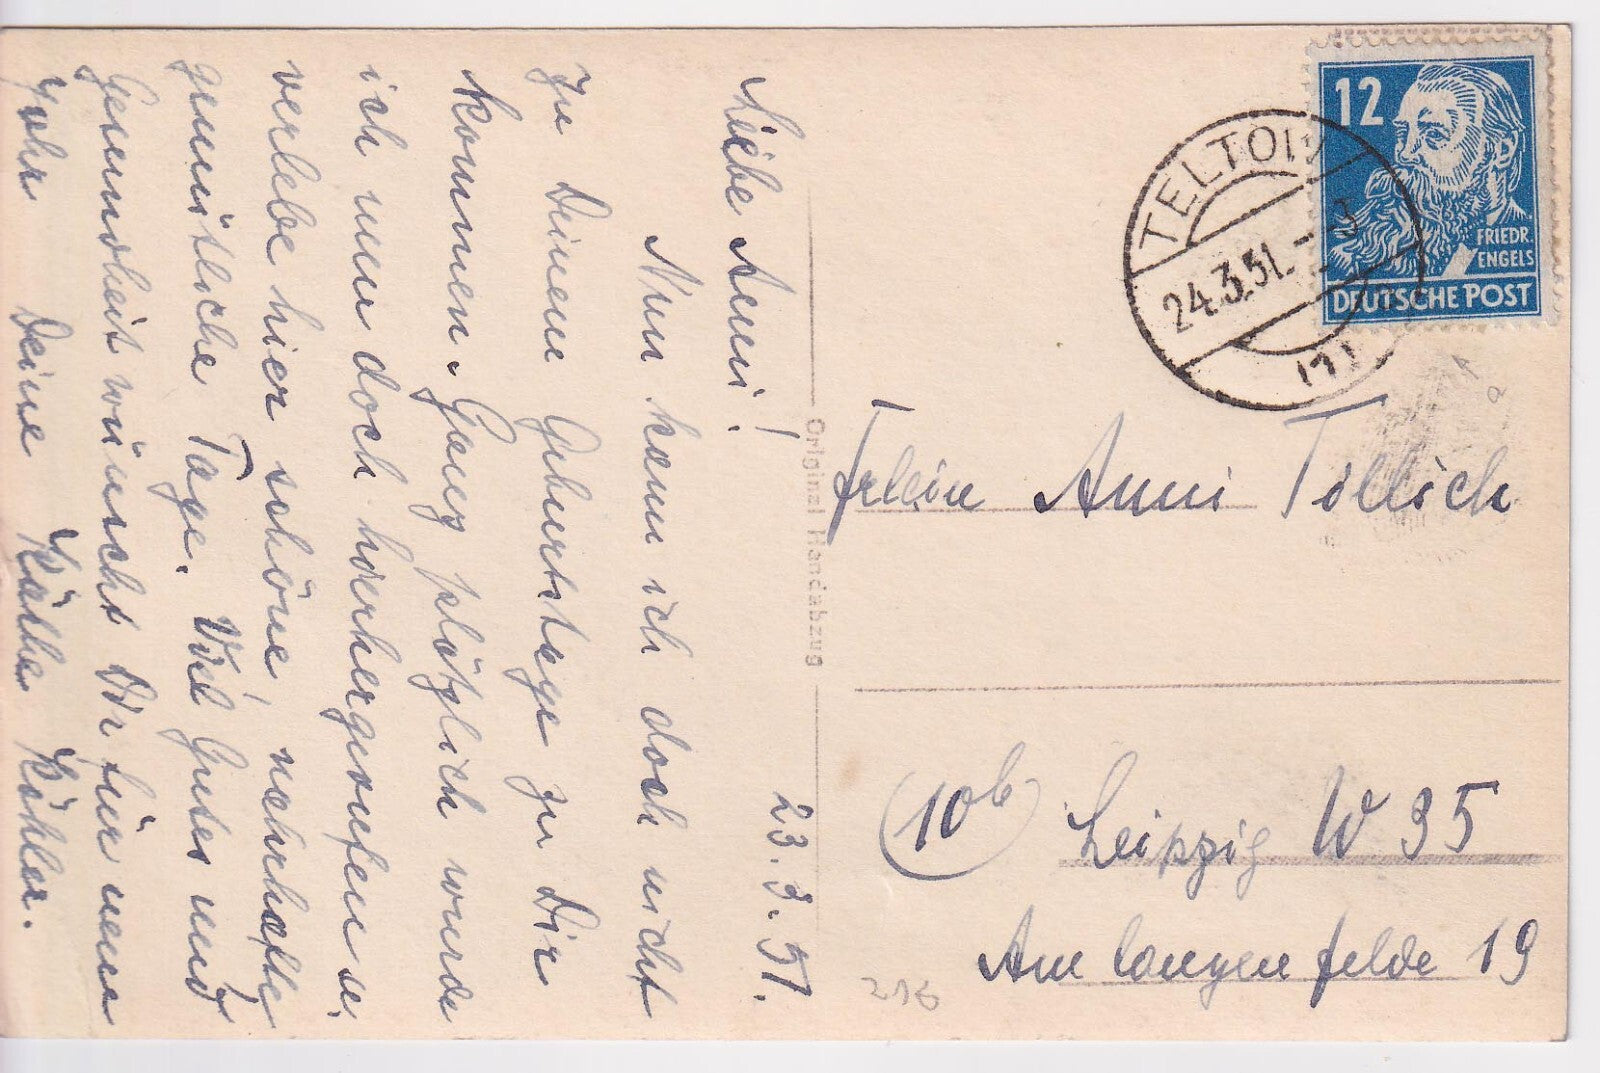 23.3.51.
Liebe Anni!
Nun kann ich doch nicht
zu Deinem Geburtstage zu Dir
kommen. Ganz plötzlich wurde
ich nun doch hierhergerufen u.
verlebe hier schöne, nahrhafte,
gemütliche Tage. Viel Gutes und
Gesundheit wünscht Dir für neue
Jahr Deine Käthe Köhler.
Original Handabzug
12
FRIEDR.
ENGELS
DEUTSCHE POST
TELTOW
24.3.51.-3
Frlein Anni Tillich
(10b) Leipzig W 35
Am langen felde 19
216